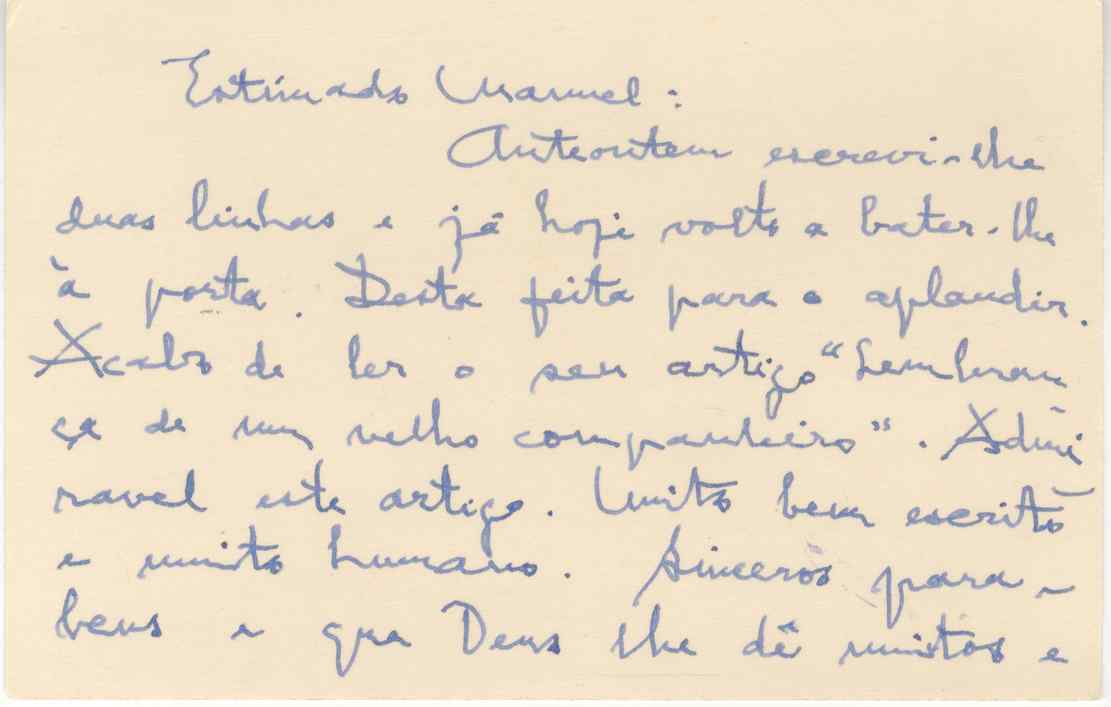 Estimado Manuel:
Anteontem escrevi-lhe
duas linhas e já hoje volto a bater-lhe
à porta. Desta feita para o aplaudir.
Acabo de ler o seu artigo "Lembran
ça de um velho companheiro". Admi
ravel este artigo. Muito bem escrito
e muito humano. Sinceros para-
bens e que Deus lhe dê muitos e